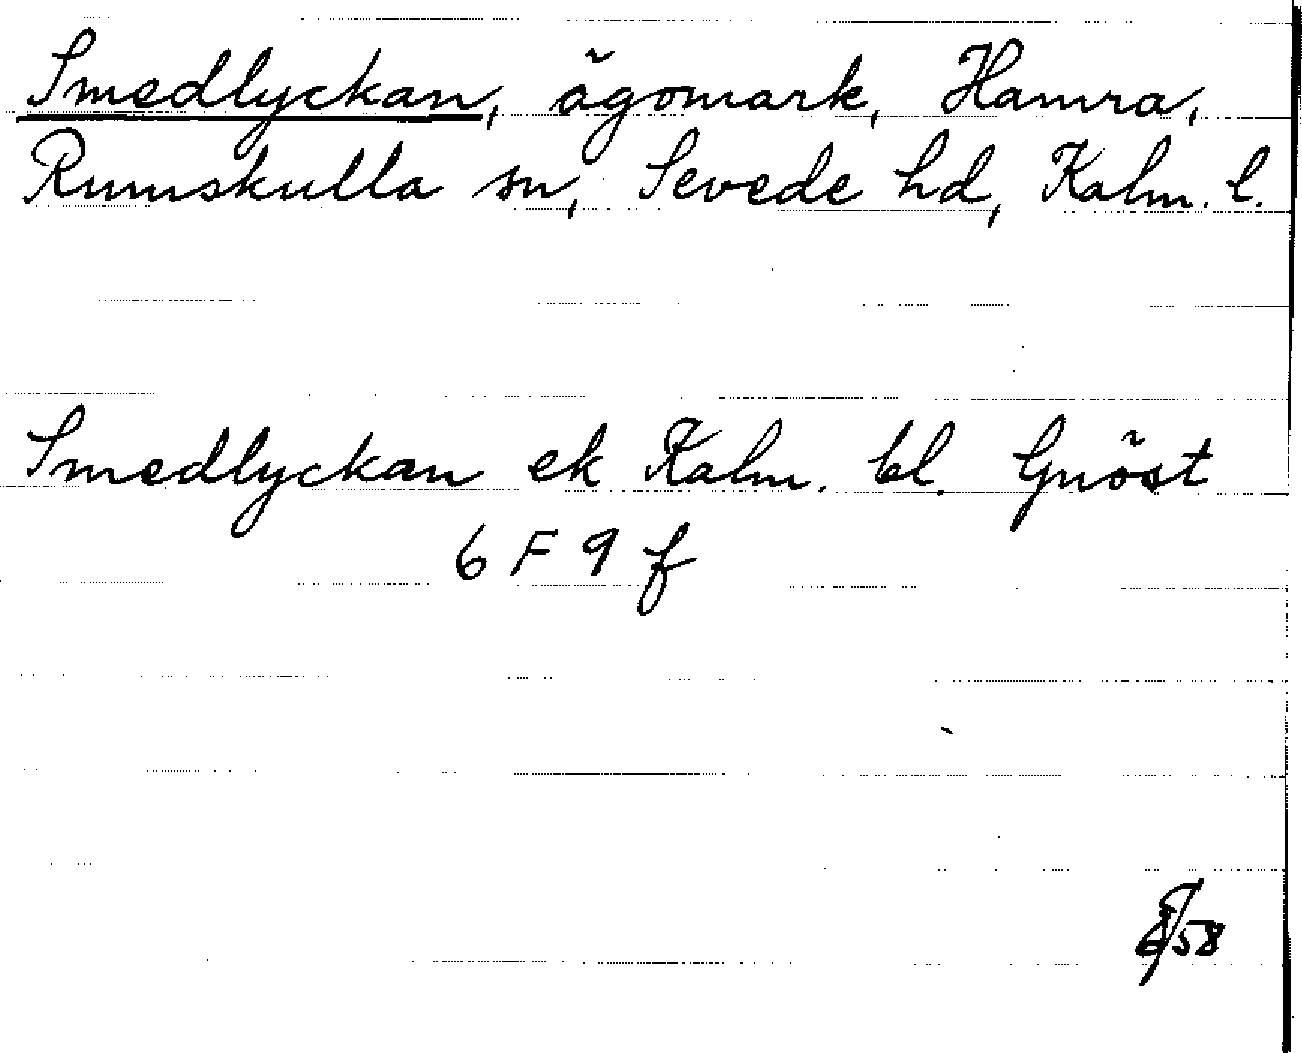 Smedlyckan, ägomark, Hamra,
Rumskulla sn, Sevede hd, Kalm. l.
Smedlyckan ek Kalm. bl. Gnöst
6 F 9 f
/58